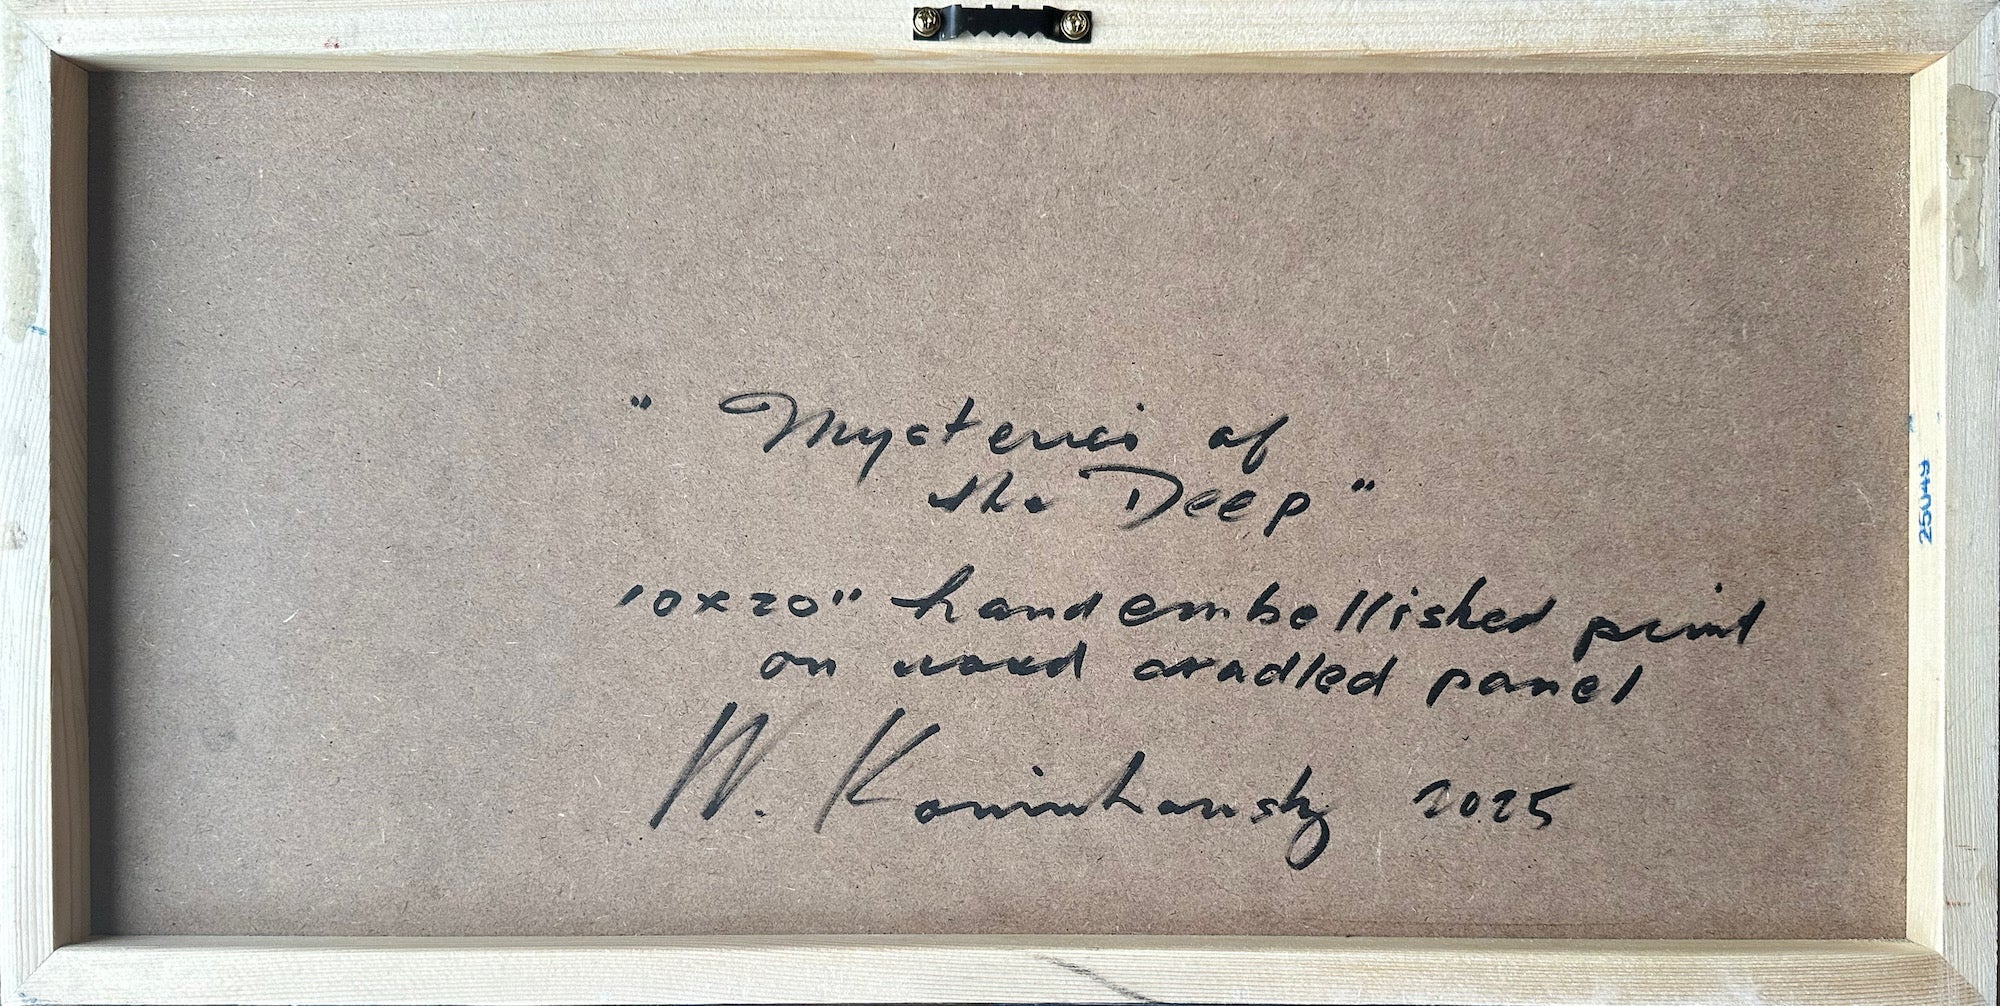 "Mysteries of
the Deep"
10x20" hand embellished print
on wood cradled panel
W. Kaminhansky 2025
25049